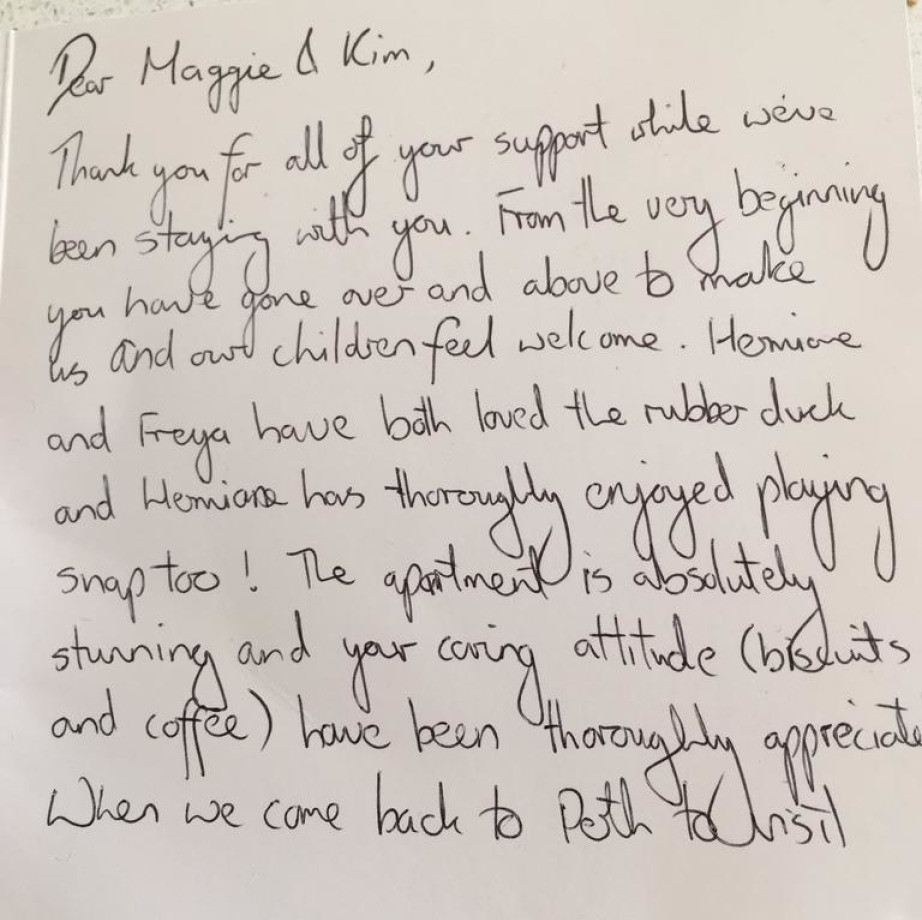 Dear Maggie & Kim,
Thank you for all of your support while we've
been staying with you. From the very beginning
you have gone over and above to make
us and our children feel welcome. Hermione
and Freya have both loved the rubber duck
and Hermione has thoroughly enjoyed playing
snap too! The apartment is absolutely
stunning and your caring attitude (biscuits
and coffee) have been thoroughly appreciate
When we come back to Perth to visit